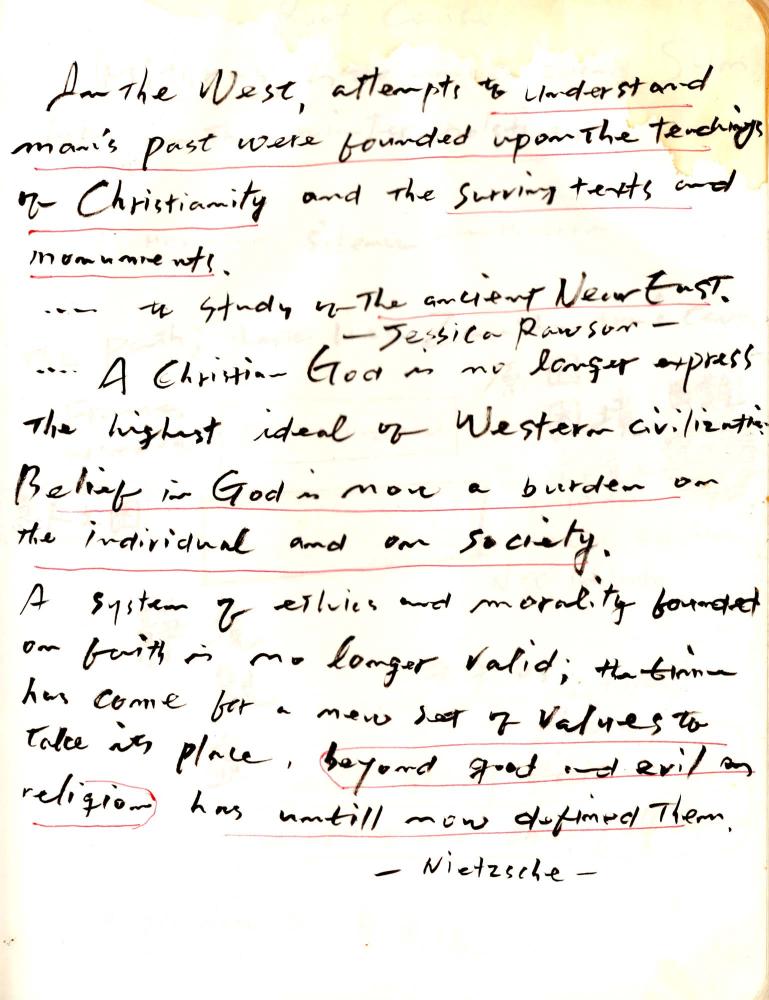 In the West, attempts to understand
man's past were founded upon the teachings
of Christianity and the surving texts and
monuments.
.... to study of the ancient Near East.
— Jessica Rawson —
.... A Christian God is no longer express
the highest ideal of Western civilization.
Belief in God is now a burden on
the individual and on society.
A system of ethics and morality founded
on faith is no longer valid; the time
has come for a new set of values to
take its place, beyond good and evil as
religion has untill now defined them.
— Nietzsche —